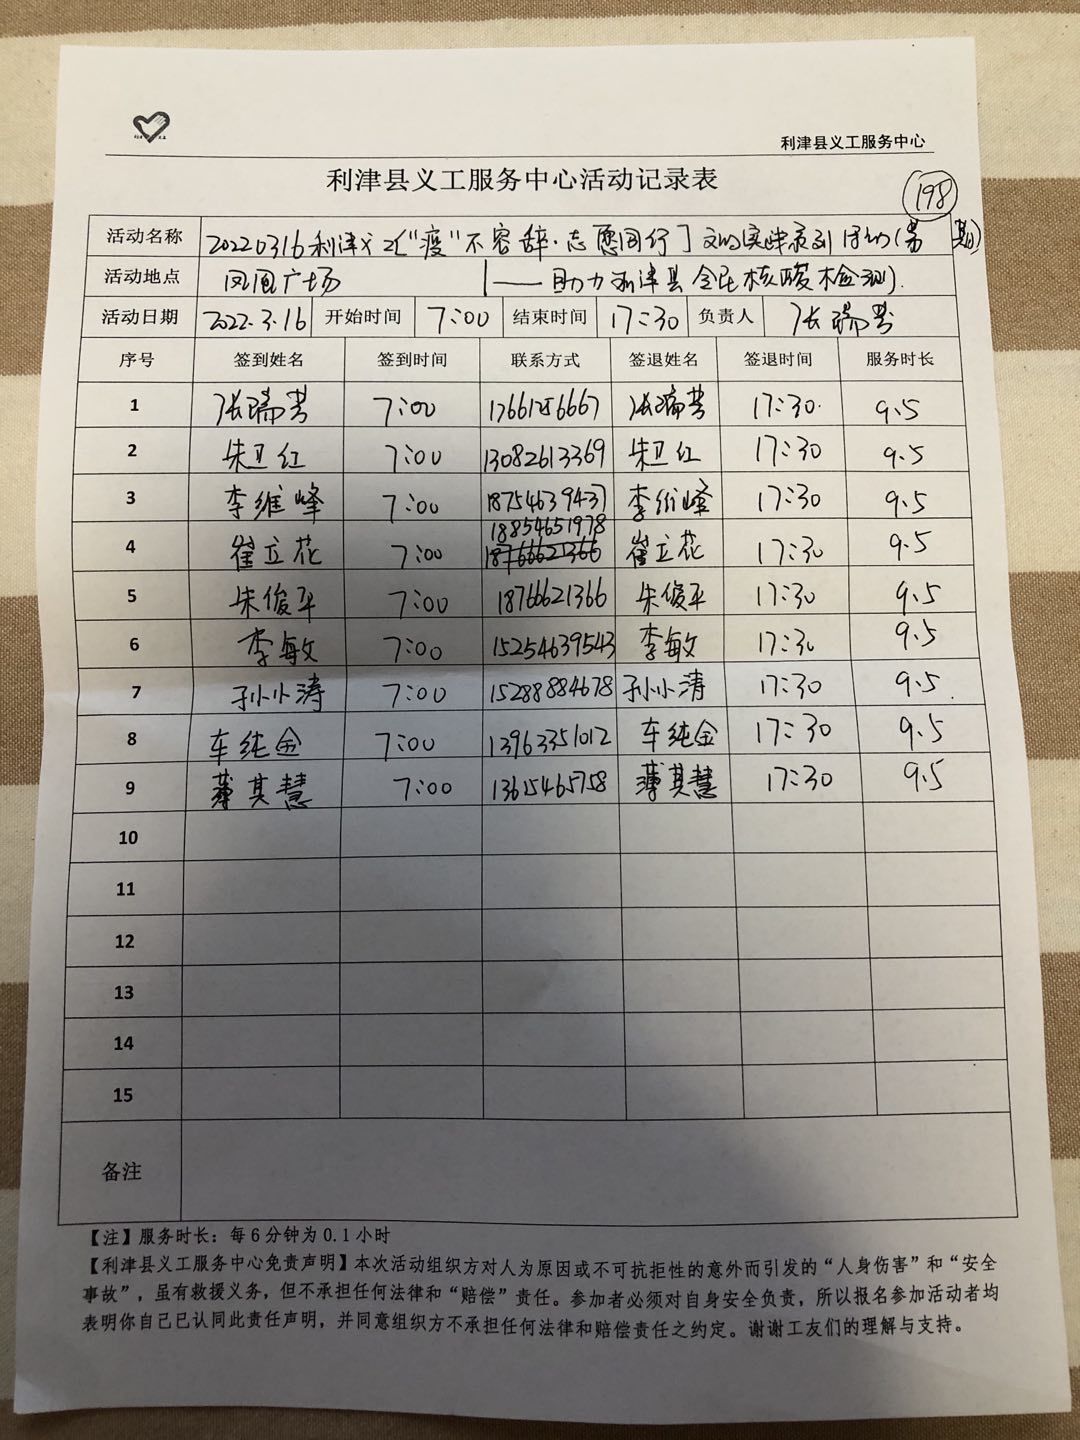 利津县义工服务中心
利津县义工服务中心活动记录表
198
活动名称 20220316利津义工["疫"不容辞·志愿同行]文明实践系列活动(第 期)
活动地点 凤凰广场 ——助力利津县全民核酸检测
活动日期 2022.3.16 开始时间 7:00 结束时间 17:30 负责人 张瑞芳
序号 签到姓名 签到时间 联系方式 签退姓名 签退时间 服务时长
1 张瑞芳 7:00 张瑞芳 17:30 9.5
2 朱卫红 7:00 13082613369 朱卫红 17:30 9.5
3 李维峰 7:00 18754639437 李维峰 17:30 9.5
18854651978
4 崔立花 7:00 18766621366 崔立花 17:30 9.5
5 朱俊平 7:00 18766621366 朱俊平 17:30 9.5
6 李敏 7:00 15254639543 李敏 17:30 9.5
7 孙小涛 7:00 15288884678 孙小涛 17:30 9.5
8 车纯金 7:00 13963351012 车纯金 17:30 9.5
9 薄其慧 7:00 13615465758 薄其慧 17:30 9.5
10
11
12
13
14
15
备注
【注】服务时长：每6分钟为0.1小时
【利津县义工服务中心免责声明】本次活动组织方对人为原因或不可抗拒性的意外而引发的“人身伤害”和“安全
事故”，虽有救援义务，但不承担任何法律和“赔偿”责任。参加者必须对自身安全负责，所以报名参加活动者均
表明你自己已认同此责任声明，并同意组织方不承担任何法律和赔偿责任之约定。谢谢工友们的理解与支持。